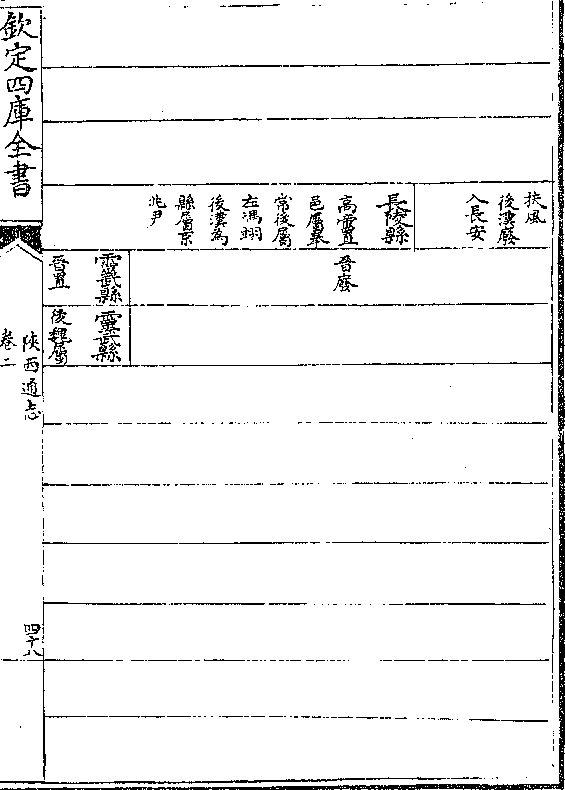 扶風
後漢廢
入長安
長陵縣
高置
邑屬奉
常後屬
左馮翊
後漢為
縣屬京
兆尹
晉廢
靈武縣
晉置
靈武縣
後魏屬
欽定四庫全書
陜西通志
卷二
四十八